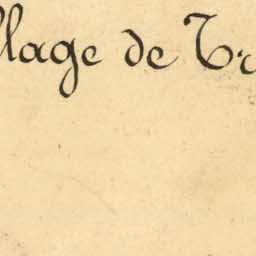 llage de Tr